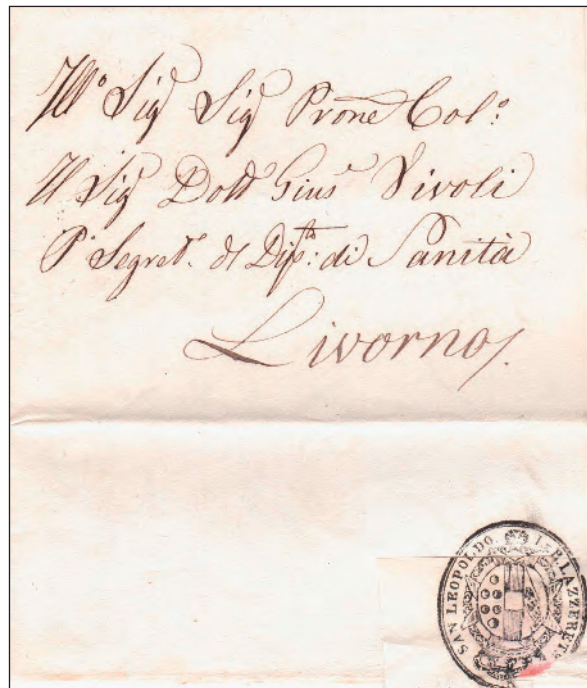 Ill.º Sig Sig Prone Col.º
Il Sig Dott Gius Vivoli
P. Segret. di Dip.to: di Sanità
Livorno
SAN LEOPOLDO. I. E R. LAZZERETO